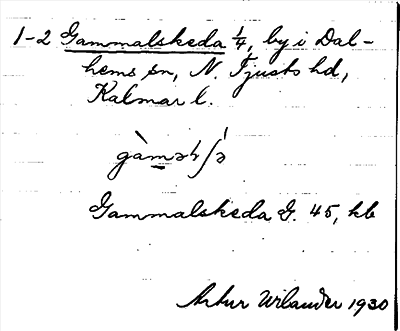 1-2 Gammalskeda 1/4, by i Dal-
hems sn, N. Tjusts hd,
Kalmar l.
Gammalskeda G. 45, kb
Artur Wilander 1930